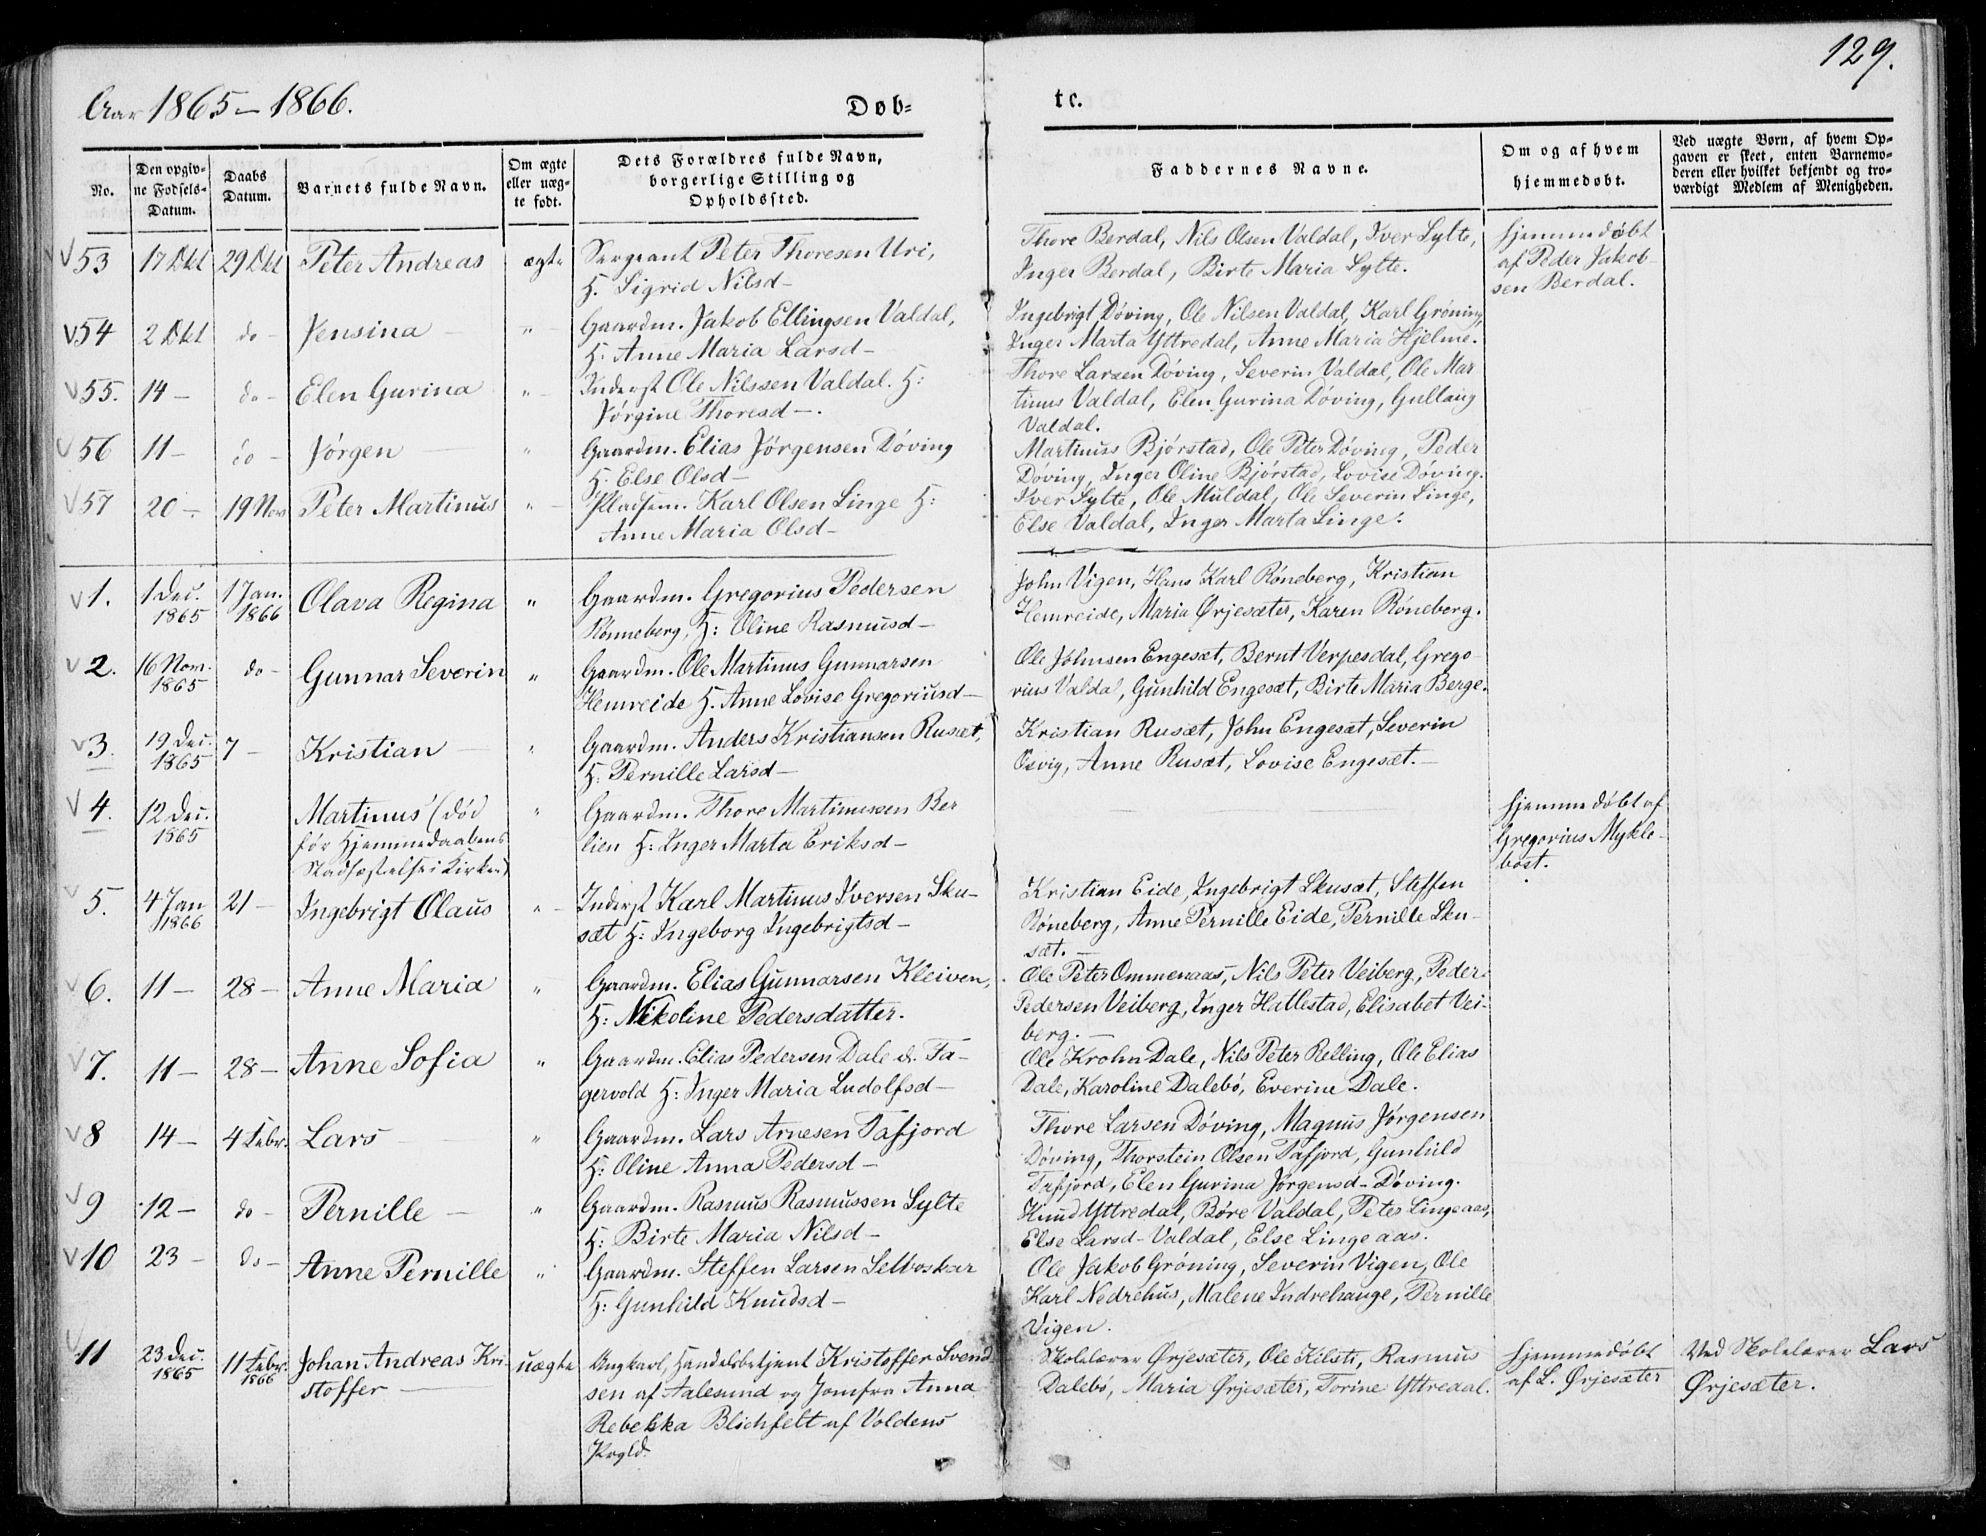 129.
Aar 1865-1866.
Døb-
te.
No.
Den opgivne Fødsels-Datum.
Daabs Datum.
Barnets fulde Navn.
Om ægte eller uægte født.
Dets Forældres fulde Navn, borgerlige Stilling og Opholdssted.
Faddernes Navne.
Om og af hvem hjemmedøbt.
Ved uægte Børn, af hvem Opgaven er skeet, enten Barnemoderen eller hvilket bekjendt og troværdigt Medlem af Menigheden.
53 17 Okt 29 Okt Peter Andreas ægte Sergeant Peter Thoresen Uri,
H. Sigrid Nilsd-
Thore Berdal, Nils Olsen Valdal, Iver Sylte,
Inger Berdal, Birte Maria Sylte.
hjemmedøbt
af Peder Jakob-
sen Berdal.
54 2 Okt do- Jensina " Gaardm. Jakob Ellingsen Valdal,
H. Anne Maria Larsd-
Ingebrigt Døving, Ole Nilsen Valdal, Karl Grøning,
Inger Marta Yttredal, Anne Maria Hjelme.
55. 14- do- Elen Gurina " Inderst Ole Nilssen Valdal. H:
Jørgine Thoresd-.
Thore Larsen Døving, Severin Valdal, Ole Mar
tinus Valdal, Elen Gurina Døving, Gullaug
Valdal.
56 11- do- Jørgen " Gaardm. Elias Jørgensen Døving
H. Else Olsd-
Martinus Bjørstad, Ole Peter Døving, Peder
Døving, Inger Oline Bjørstad, Lovise Døving.
57 20-. 19 Nov Peter Martinus " Pladsm. Karl Olsen Linge H:
Anne Maria Olsd-
Iver Sylte, Ole Muldal, Ole Severin Linge,
Else Valdal, Inger Marta Linge.
1. 1 Dec. 1865 1 Jan. 1866 Olava Regina " Gaardm. Gregorius Pedersen
Rønneberg, H: Oline Rasmusd-
John Vigen, Hans Karl Røneberg, Kristian
Hemreide, Maria Ørjesæter, Karen Røneberg.
2. 16 Nom. 1865 do- Gunnar Severin " Gaardm. Ole Martinus Gunnarsen
Hemreide H. Anne Lovise Gregoriusd-
Ole Johnsen Engesæt, Bernt Verpesdal, Grego-
rius Valdal, Gunhild Engesæt, Birte Maria Berge.
3. 19 Dec. 1865 7- Kristian " Gaardm. Anders Kristiansen Rusæt,
H. Pernille Larsd-
Kristian Rusæt, John Engesæt, Severin
Osvig, Anne Rusæt, Lovise Engesæt.-
4. 12 Dec. 1865 Martinus (død
før Hjemmedaabens
Stadfæstelse i Kirken)
" Gaardm. Thore Martinussen Ber
lien H: Inger Marta Eriksd-
hjemmedøbt af
Gregorius Mykle-
bost.
5. 4 Jan 1866 21- Ingebrigt Olaus " Inderst Karl Martinus Iversen Sku-
sæt H: Ingeborg Ingebrigtsd-
Kristian Eide, Ingebrigt Skusæt, Steffen
Røneberg, Anne Pernille Eide, Pernille Sku-
sæt.-
6. 11- 28- Anne Maria " Gaardm. Elias Gunnarsen Kleiven,
H: Nikoline Pedersdatter.
Ole Peter Ommenaas, Nils Peter Veiberg, Peder
Pedersen Veiberg, Inger Hallestad, Elisabet Vei-
berg.-
7. 11- 28- Anne Sofia " Gaardm. Elias Pedersen Dale d. Fa-
gervold H: Inger Maria Ludolfsd-
Ole Krohn Dale, Nils Peter Relling, Ole Elias
Dale, Karoline Dalebø, Everine Dale.
8 14- 4 Febr. Lars " Gaardm. Lars Arnesen Tafjord
H: Oline Anna Pedersd-
Thore Larsen Døving, Magnus Jørgensen
Døving, Thorstein Olsen Tafjord, Gunhild
Tafjord, Elen Gurina Jørgensd- Døving.
9 12- do- Pernille " Gaardm. Rasmus Rasmussen Sylte
H: Birte Maria Nilsd-
Knud Yttredal, Børe Valdal, Peter Lingeaas,
Else Larsd- Valdal, Else Lingeaas.
10 23- do- Anne Pernille " Gaardm. Steffen Larsen Selboskar
H: Gunhild Knudsd-
Ole Jakob Grøning, Severin Vigen, Ole
Karl Nedrehus, Malene Indrehauge, Pernille
Vigen.
11 23 Dec. 1865 11 Febr. 1866 Johan Andreas Kri-
stoffer
uægte Ungkarl, Handelsbetjent Kristoffer Svend
sen af Aalesund og Jomfru Anna
Rebekka Blichfelt af Voldens
Prgld.
Skolelærer Ørjesæter, Ole Kilsti, Rasmus
Dalebø, Maria Ørjesæter, Torine Yttredal.
hjemmedøbt
af L. Ørjesæter
Ved Skolelærer Lars
Ørjesæter.